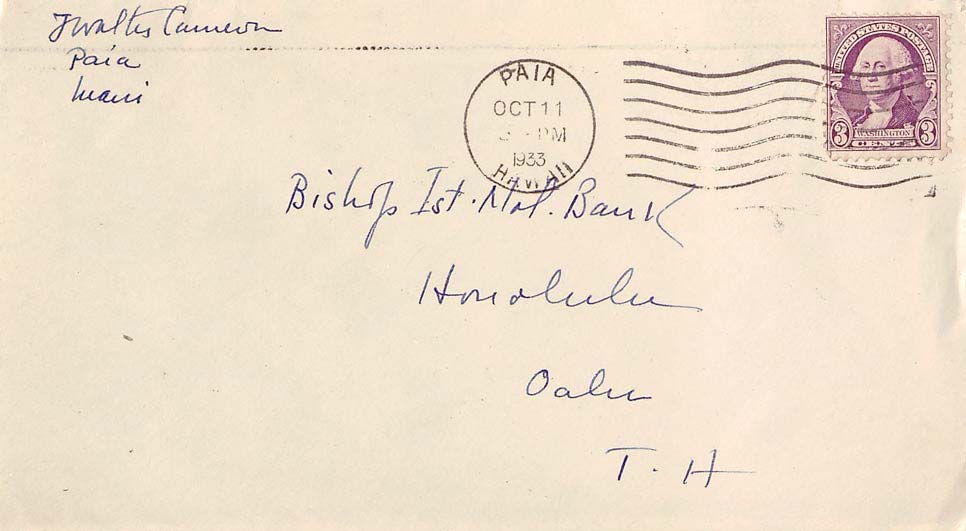 J Walter Cameron
Paia
Maui
PAIA
OCT 11
PM
1933
HAWAII
UNITED STATES POSTAGE
3 WASHINGTON 3
CENTS
Bishop Ist. Nat. Bank
Honolulu
Oahu
T. H